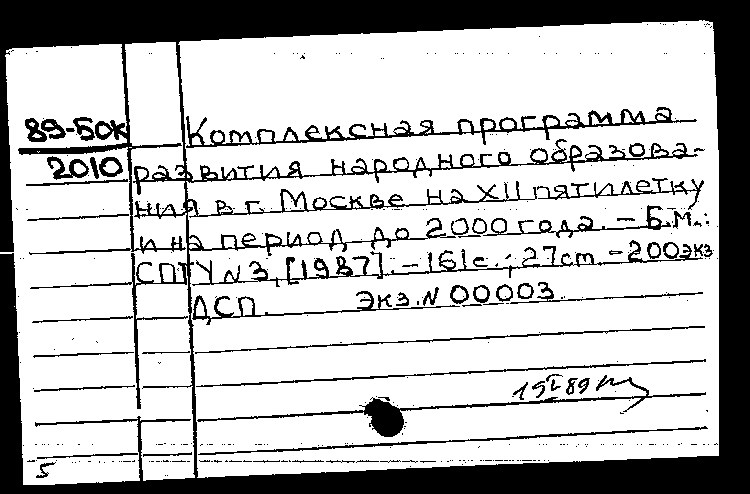 89-50к
2010
Комплексная программа
развития народного образова-
ния в г. Москве на XII пятилетку
и на период до 2000 года. – Б.М.:
СПТУ N3, [1987]. – 161с.; 27cm. – 200экз
ДСП. Экз. N 00003.
5